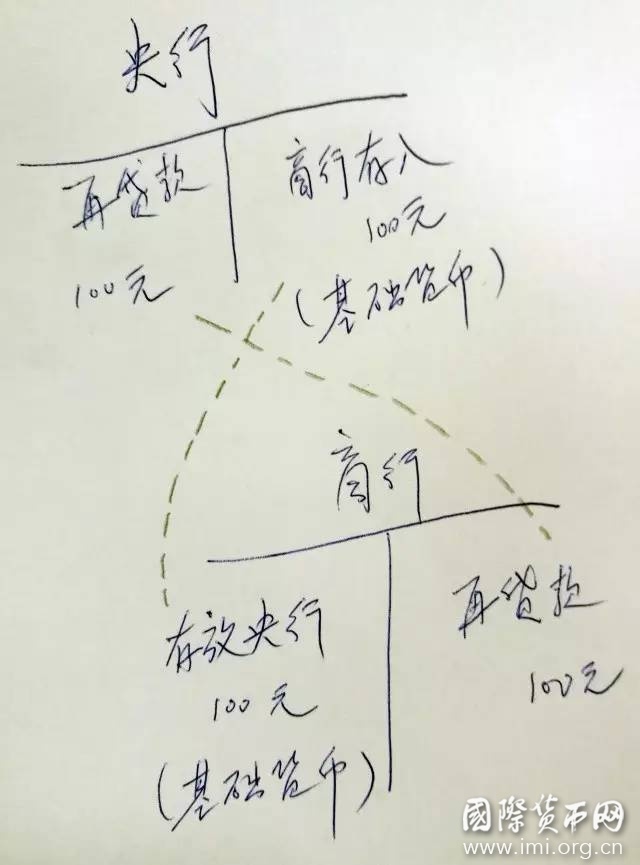 央行
再贷款
100元
商行存入
100元
(基础货币)
商行
存放央行
100元
(基础货币)
再贷款
100元
國際货币网
www.imi.org.cn